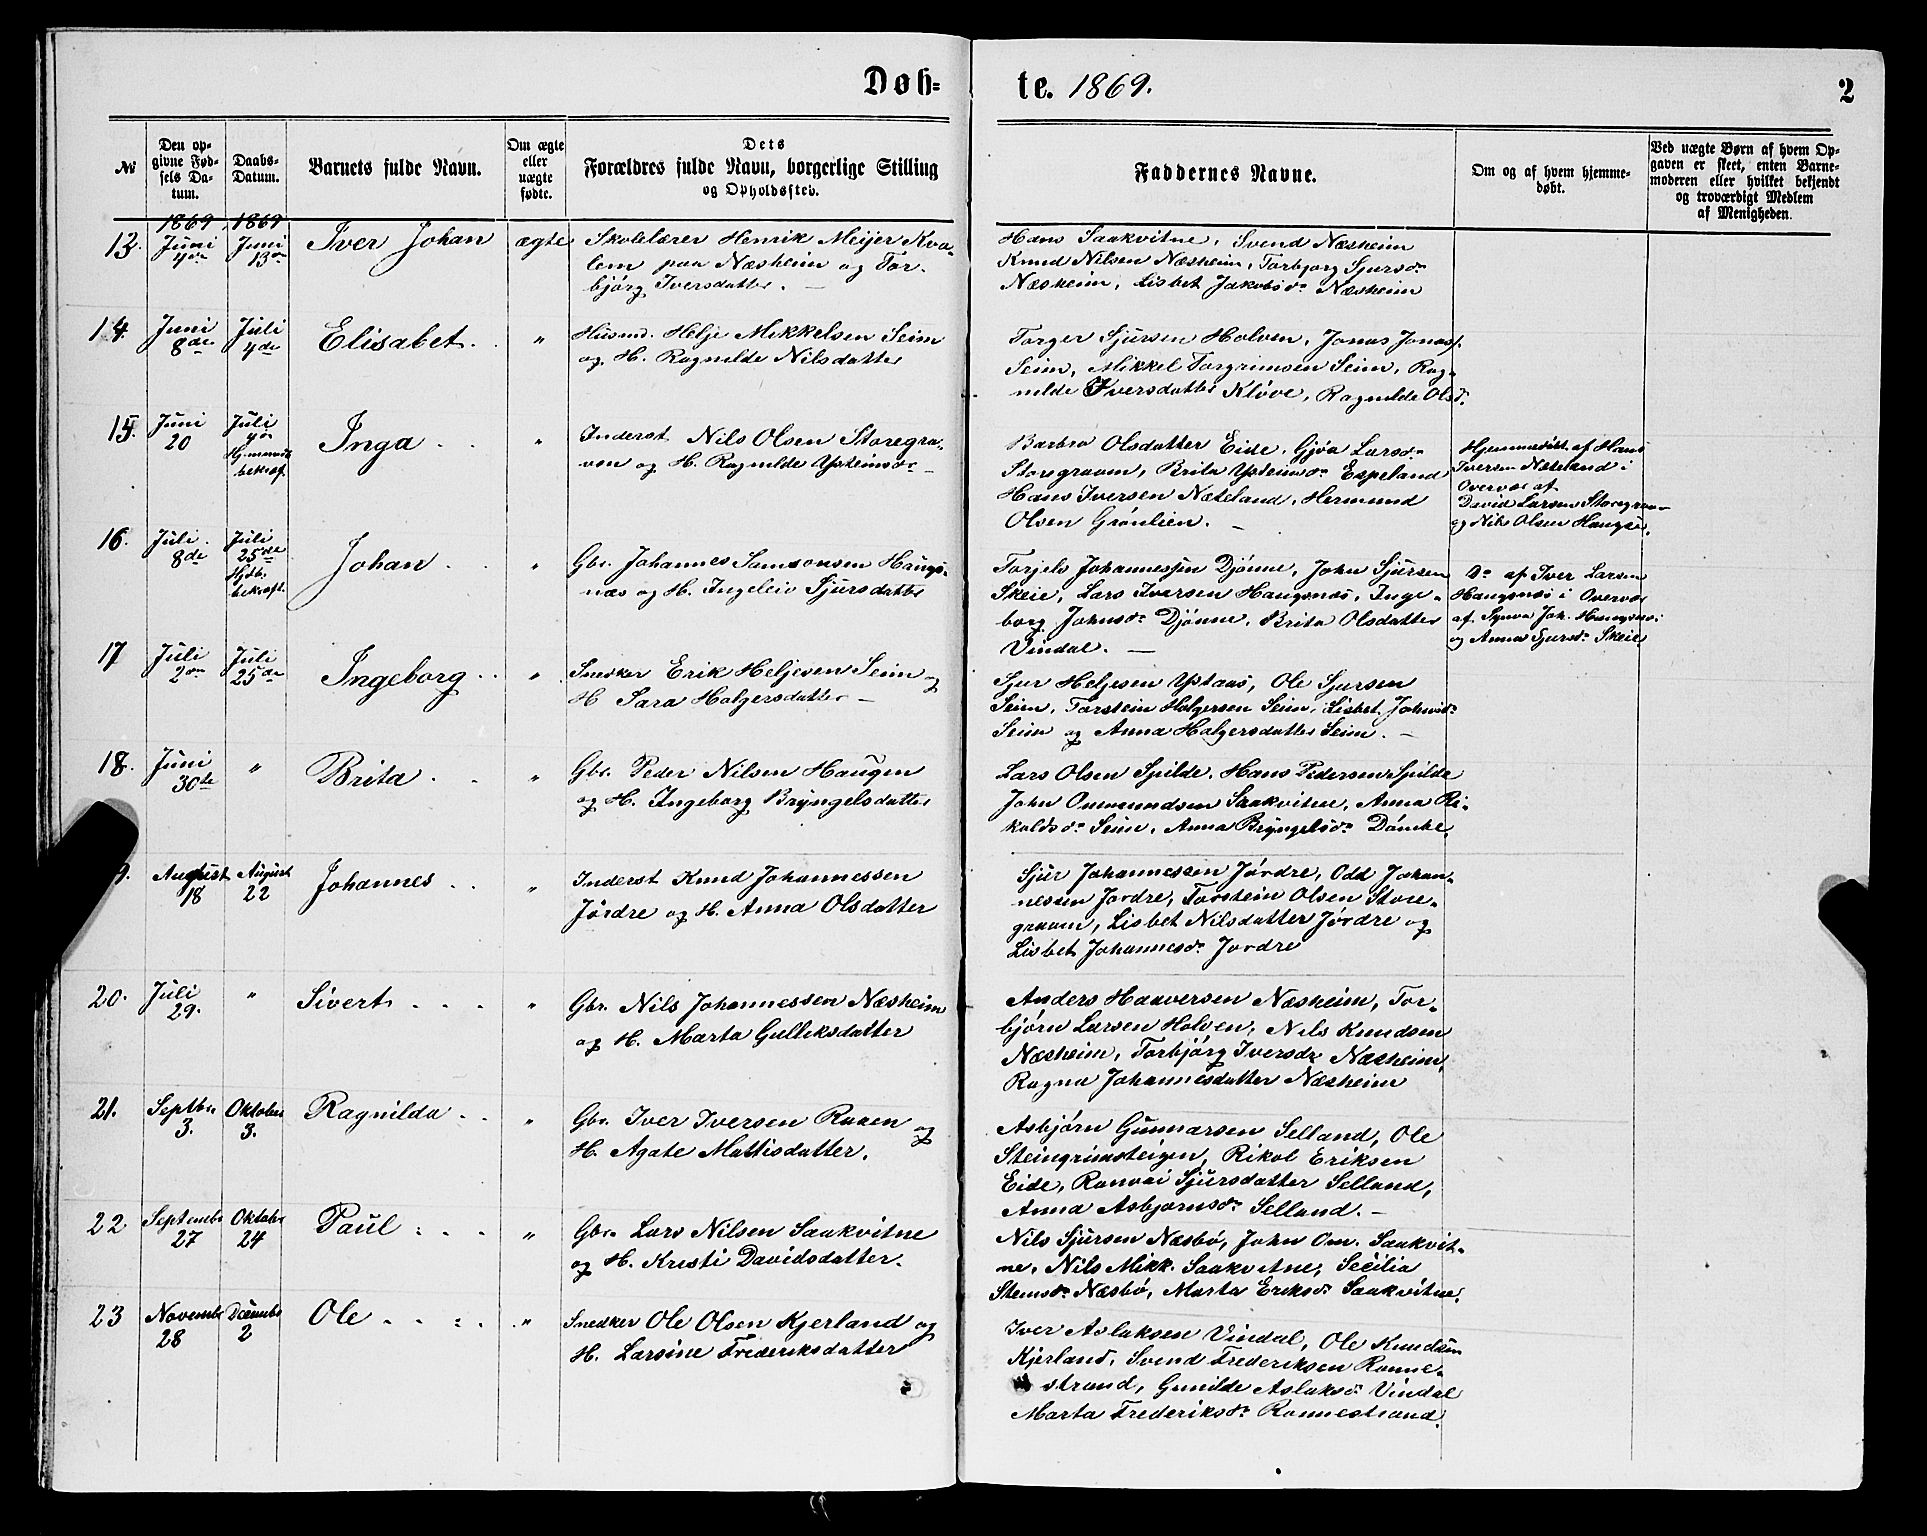 Døb-
te. 1869.
2
№
Den op-
givne Fød-
sels Da-
tum.
Daabs-
Datum.
Barnets fulde Navn.
Om ægte
eller
uægte
fødte.
Dets
Forældres fulde Navn, borgerlige Stilling
og Opholdssted.
Faddernes Navne.
Om og af hvem hjemme-
døbt.
Ved uægte Børn af hvem Op-
gaven er skeet, enten Barne-
moderen eller hvilket bekjendt
og troværdigt Medlem
af Menigheden.
13.
1869
Juni
4de
1869
Juni
13de
Iver Johan
ægte
Skolelærer Henrik Meijer Kva-
lem paa Næsheim og Tor-
bjørg Iversdatter. —
Hans Saakvitne, Svend Næsheim
Knud Nilsen Næsheim, Torbjorg Sjursdr
Næsheim, Lisbet Jakobsdr Næsheim
14.
Juni
8de
Juli
4de
Elisabet. .
"
Husmd. Helje Mikkelsen Seim
og H. Ragnilde Nilsdatter
Torger Sjursen Holven, Jonas Jonass.
Seim, Mikkel Torgrimsen Seim, Rag-
nilde Iversdatter Kløve, Ragnilde Olsd.
15.
Juni
20
Juli
4de
bekræf.
Inga . .
"
Inderst Nils Olsen Storegra-
ven og H. Ragnilde Ysteinsdr —
Barbra Olsdatter Eide, Gjøa Larsdr
Storegraven, Brita Ysteinsdr Espeland
Hans Iversen Næteland, Hermund
Olsen Grønlien. —
Hjemmedøbt af Hans
Iversen Næteland i
Overvær af
David Larsen Storegraa-
og Nils Olsen Haugse.
16.
Juli
8de
Juli
25de
Hjdb.
bekræft.
Johan . .
"
Gbr. Johannes Samsonsen Haugs-
næs og H. Ingeleiv Sjursdatter
Torjels Johannessen Djønne, John Sjursen
Skeie, Lars Iversen Haugsnæs, Inge-
borg Johnsdr Djønne, Brita Olsdatter
Vindal. —
Do af Iver Larsen
Haugsnæs i Overvær
af Synva Joh. Haugsnæs
og Anna Sjursdr Skeie.
17
Juli
2den
Juli
25de
Ingeborg . .
"
Smeker Erik Heljesen Seim og
H Sara Holgersdatter —
Sjur Heljesen Ystaas, Ole Sjursen
Seim, Torstein Holgersen Seim, Lisbet Johnsdr
Seim og Anna Holgersdatter Seim. —
18.
Juni
30te
"
Brita . .
"
Gbr. Peder Nilsen Haugen
og H. Ingeborg Bryngelsdatter
Lars Olsen Spilde, Hans Pedersen Spilde
John Ommundsen Saakvitne, Anna Ri-
koldsdr Seim, Anna Bryngelsdr Dømke.
9.
August
18
August
22
Johannes . .
"
Inderst Knud Johannessen
Jørdre og H. Anna Olsdatter
Sjur Johannessen Jørdre, Odd Johan-
nessen Jordre, Torstein Olsen Store-
graven, Lisbet Nilsdatter Jørdre og
Lisbet Johannesdr Jordre
20.
Juli
29.
"
Sivert . . .
"
Gbr. Nils Johannessen Næsheim
og H. Marta Gulleiksdatter
Anders Haaversen Næsheim, Tor-
bjørn Larsen Holven, Nils Knudsen
Næsheim, Torbjørg Iversdr Næsheim,
Ragna Johannesdatter Næsheim
21.
Septbr.
3.
Oktober
3.
Ragnilda . .
"
Gbr. Iver Iversen Raaen og
H. Agate Mattisdatter.
Asbjørn Gunnarsen Selland, Ole
Steingrimsteigen, Rikol Eriksen
Eide, Ranvei Sjursdatter Selland,
Anna Asbjornsdr Selland. —
22
Septembr
27
Oktober
24
Paul . . .
"
Gbr. Lars Nilsen Saakvitne
og H. Kristi Davidsdatter.
Nils Sjursen Næsbø, John Om. Saakvit-
ne, Nils Mikk. Saakvitne, Secilia
Stemsdr Næsbø, Marta Eriksdr Saakvitne.
23
Novembr
28
Decembr
2
Ole . . . .
"
Snedker Ole Olsen Kjerland og
H. Larsine Frederiksdatter
Iver Aslaksen Vindal, Ole Knudsen
Kjerland, Svend Frederiksen Ronne-
strand, Gunilde Aslaksdr Vindal
Marta Frederiksdr Ronnestrand.